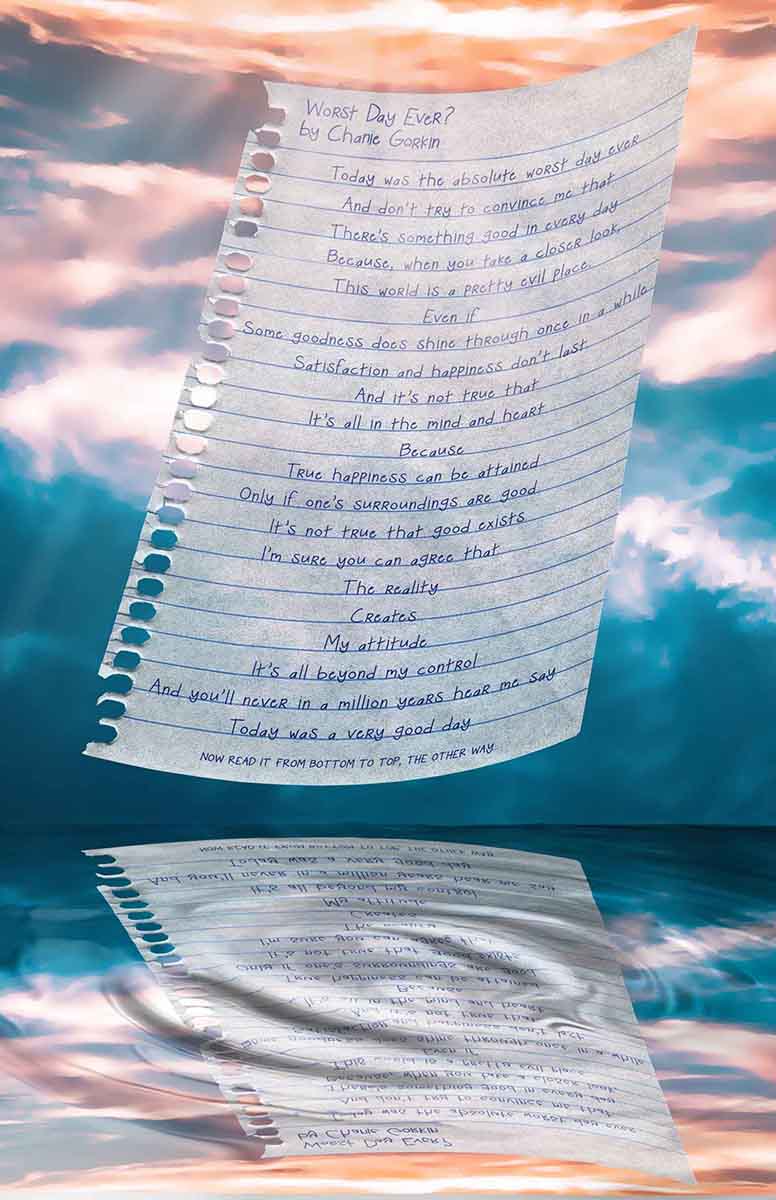 Worst Day Ever?
by Chanie Gorkin
Today was the absolute worst day ever
And don't try to convince me that
There's something good in every day
Because, when you take a closer look,
This world is a pretty evil place.
Even if
Some goodness does shine through once in a while
Satisfaction and happiness don't last
And it's not true that
It's all in the mind and heart
Because
True happiness can be attained
Only if one's surroundings are good
It's not true that good exists
I'm sure you can agree that
The reality
Creates
My attitude
It's all beyond my control
And you'll never in a million years hear me say
Today was a very good day
NOW READ IT FROM BOTTOM TO TOP, THE OTHER WAY